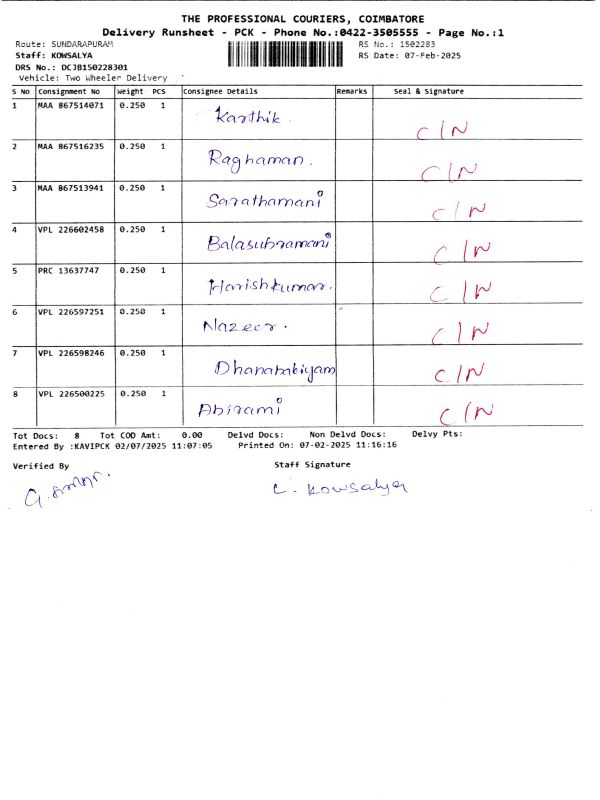 THE PROFESSIONAL COURIERS, COIMBATORE
Delivery Runsheet - PCK - Phone No.:0422-3505555 - Page No.:1
Route: SUNDARAPURAM RS No.: 1502283
Staff: KOWSALYA RS Date: 07-Feb-2025
DRS No.: DCJB150228301
Vehicle: Two Wheeler Delivery
S No Consignment No Weight PCS Consignee Details Remarks Seal & Signature
1 MAA 867514071 0.250 1 Karthik. C/N
2 MAA 867516235 0.250 1 Raghaman. C/N
3 MAA 867513941 0.250 1 Sarathamani C/N
4 VPL 226602458 0.250 1 Balasubramani C/N
5 PRC 13637747 0.250 1 Harishkumar. C/N
6 VPL 226597251 0.250 1 Nazeer. C/N
7 VPL 226598246 0.250 1 Dhanabakiyam C/N
8 VPL 226500225 0.250 1 Abirami C/N
Tot Docs: 8 Tot COD Amt: 0.00 Delvd Docs: Non Delvd Docs: Delvy Pts:
Entered By :KAVIPCK 02/07/2025 11:07:05 Printed On: 07-02-2025 11:16:16
Verified By Staff Signature
C. Kowsalya